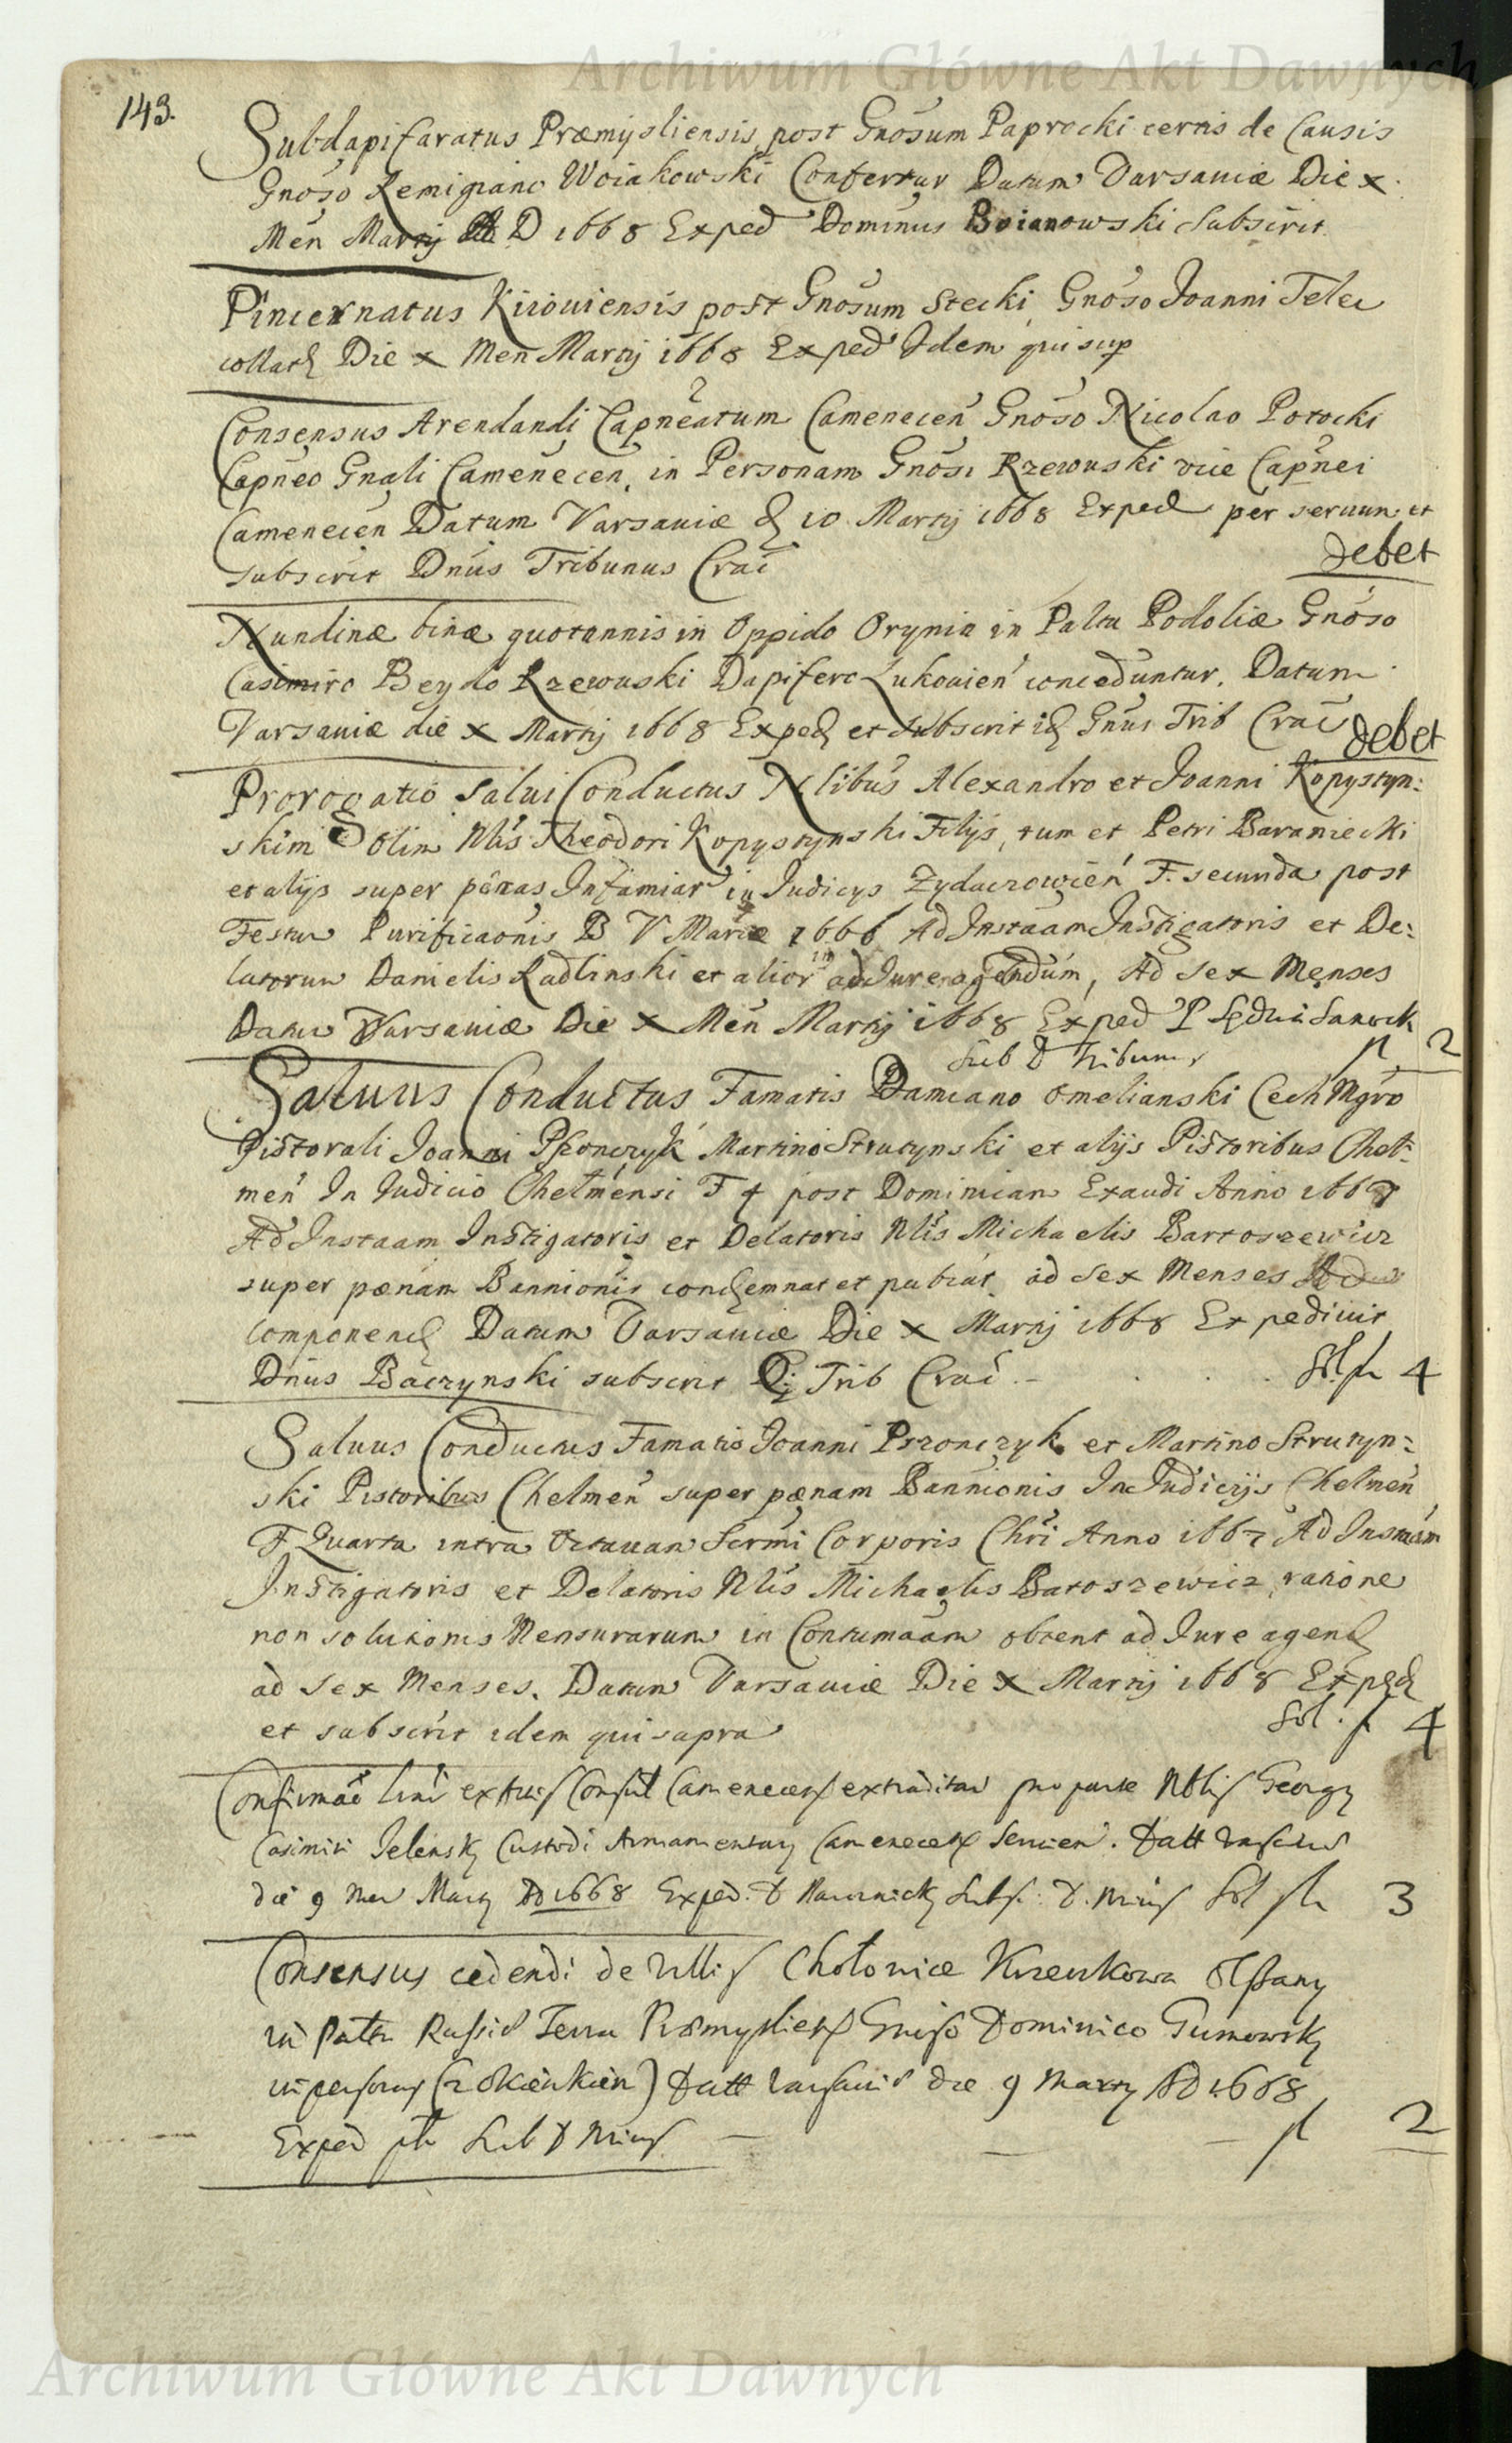 Archiwum Główne Akt Dawnych
143.
Subdapiferatus Præmysliensis post Gnosum Paprocki certis de Causis
Gnoso Remigiano Woiakowski Confertur Datum Varsaviæ Die x.
Men Martij A D 1668 Exped Dominus Boianowski Subscrit
Pincernatus Kijoviensis post Gnosum Stecki Gnoso Joanni Telec
collatq Die x Men Martij 1668 Exped Idem qui sup
Consensus Arendandi Capneatum Camenecen Gnoso Nicolao Potocki
Capneo Gnali Camenecen, in Personam Gnosi Rzewuski vice Capnei
Camenecen Datum Varsaviæ d 10 Martij 1668 Exped per servum et
subscrit Dnus Tribunus Crac
debet
Nundinæ binæ quotannis in Oppido Orynin in Paltu Podoliæ Gnoso
Casimiro Beydo Rzewuski Dapifero Lukovien conceduntur. Datum
Varsaviæ die x Martij 1668 Exped et Subscrit id Gnus Trib Crac
debet
Prorogatio Salvi Conductus Nlibus Alexandro et Joanni Kopystyn:
skim olim Nlis Theodori Kopystynski Filijs, tum et Petri Baraniecki
et alijs super pœnas Infamiar in Judicijs Zydaczowien F. secunda post
Festum Purificaonis B V Mariæ 1666 Ad Instaam Instigatoris et De:
latorum Danielis Radlinski et alior ad Jure agendum, Ad Sex Menses
Datum Varsaviæ Die x Men Martij 1668 Exped P Sędzia Sanock
Sub D Tribunus fl 2
Salvus Conductus Famatis Damiano Omelianski Cech Mgro
Pistorali Joanni Pszonczyk Martino Strutynski et alijs Pistoribus Chel:
men In Judicio Chelmensi F 4 post Dominicam Exaudi Anno 1667
Ad Instaam Instigatoris et Delatoris Nlis Michaelis Bartoszewicz
super pœnam Bannionis condemnat et publicat ad Sex Menses
componend Datum Varsaviæ Die x Martij 1668 Expedivit
Dnus Baczynski subscrit D Trib Crac. Sol. fl 4
Salvus Conductus Famatis Joanni Pszonczyk et Martino Strutyn:
ski Pistoribus Chelmen super pœnam Bannionis In Judicijs Chelmen
F Quarta intra Octavam Scrmi Corporis Chri Anno 1667 Ad Instaam
Instigatoris et Delatoris Nlis Michaelis Batoszewicz ratione
non solutionis Mensurarum in Contumaam obtent ad Jure agend
ad Sex Menses. Datum Varsaviæ Die x Martij 1668 Exped
et subscrit idem qui supra Sol. fl 4
Confirmao ex Actis Consul Camenecen extraditar pro parte Nblis Georgij
Casimiri Jelensky Custodi Armamentarij Camenecen Servien. Datt Varsaviæ
die 9 Men Martij AD 1668 Exped. D Subs: D. Sol fl 3
Consensus cedendi de Villis Chołowice Krzeczkowa Olszany
in Palatu Russiæ Terra Præmyslien Gnoso Dominico Gumowsky
in personas (z Okienkien) Datt Varsaviæ die 9 Martij AD 1668
Exped Sub D fl 2
Archiwum Główne Akt Dawnych